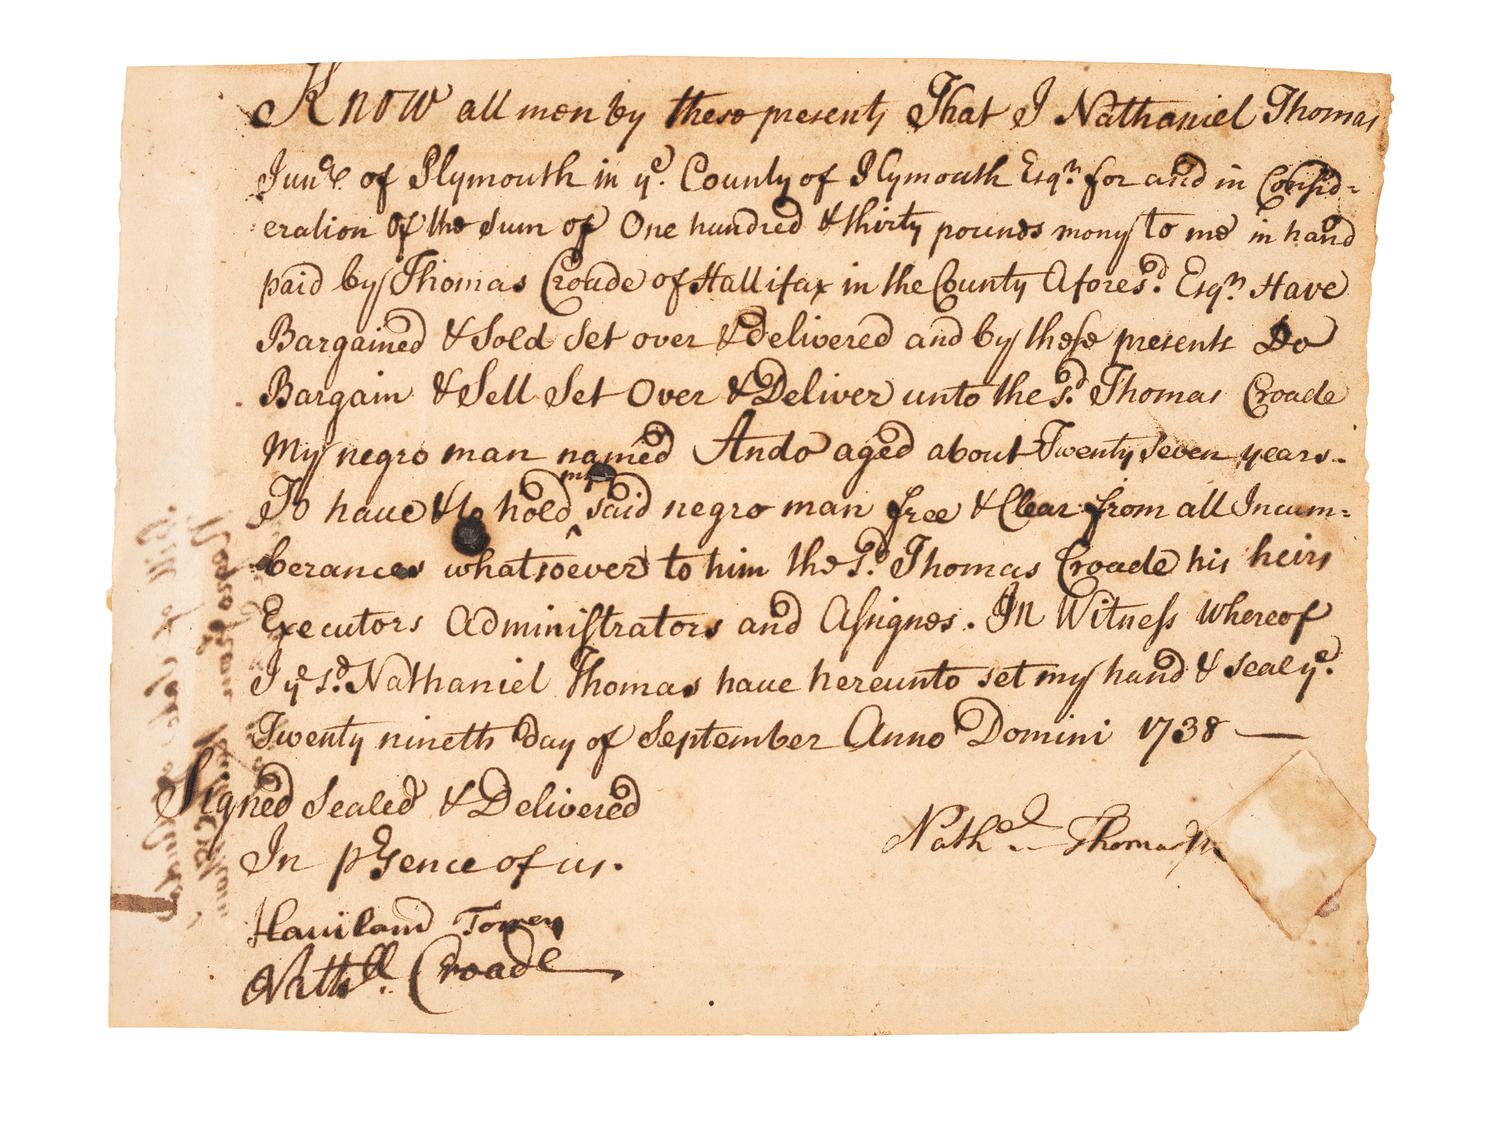 Know all men by these presents That I Nathaniel Thomas
Junr. of Plymouth in ye. County of Plymouth Esqr. for and in Consid=
eration of the Sum of One hundred & thirty pounds mony to me in hand
paid by Thomas Croade of Hallifax in the County Afores.d Esqr. Have
Bargained & Sold Set over & Delivered and by these presents Do
Bargain & Sell Set Over & Deliver unto the s.d Thomas Croade
My negro man named Ando aged about Twenty Seven years.
To have & to hold my said negro man free & Clear from all Incum=
berances whatsoever to him the s.d Thomas Croade his heirs
Executors Administrators and Assignes. In Witness whereof
I ye s.d Nathaniel Thomas have hereunto set my hand & seal ye.
Twenty nineth day of September Anno Domini 1738 —
Signed Sealed & Delivered
In psence of us.
Nathel. Thomas
Haviland Torrey
Nathll. Croade